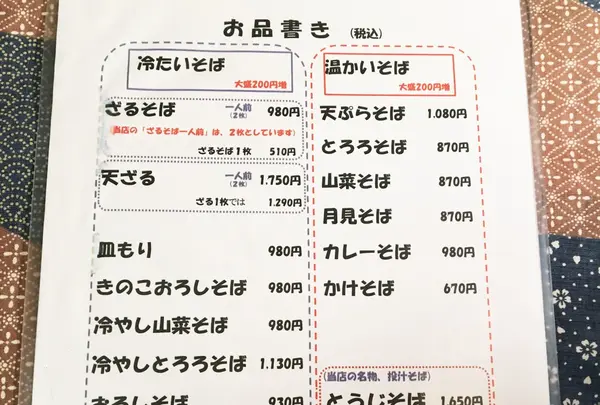 お品書き (税込)
冷たいそば
大盛200円増
ざるそば 一人前(2枚) 980円
(当店の「ざるそば一人前」は、2枚としています)
ざるそば1枚 510円
天ざる 一人前(2枚) 1.750円
ざる1枚では 1.290円
皿もり 980円
きのこおろしそば 980円
冷やし山菜そば 980円
冷やしとろろそば 1.130円
おろしそば 930円
温かいそば
大盛200円増
天ぷらそば 1.080円
とろろそば 870円
山菜そば 870円
月見そば 870円
カレーそば 980円
かけそば 670円
(当店の名物、投汁そば)
とうじそば 1.650円